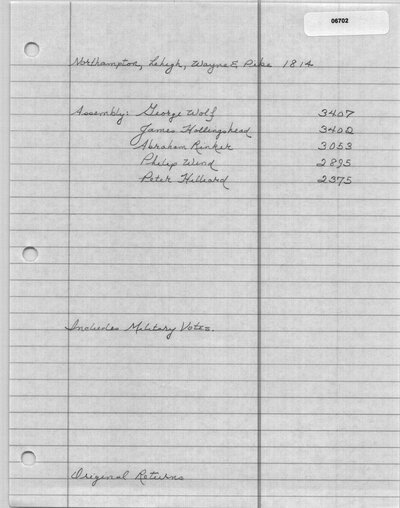 06702
Northampton, Lehigh, Wayne & Pike 1814
Assembly: George Wolf 3407
James Hollingshead 3400
Abraham Rinker 3053
Philip Wind 2895
Peter Hilliard 2375
Includes Military Votes.
Original Returns